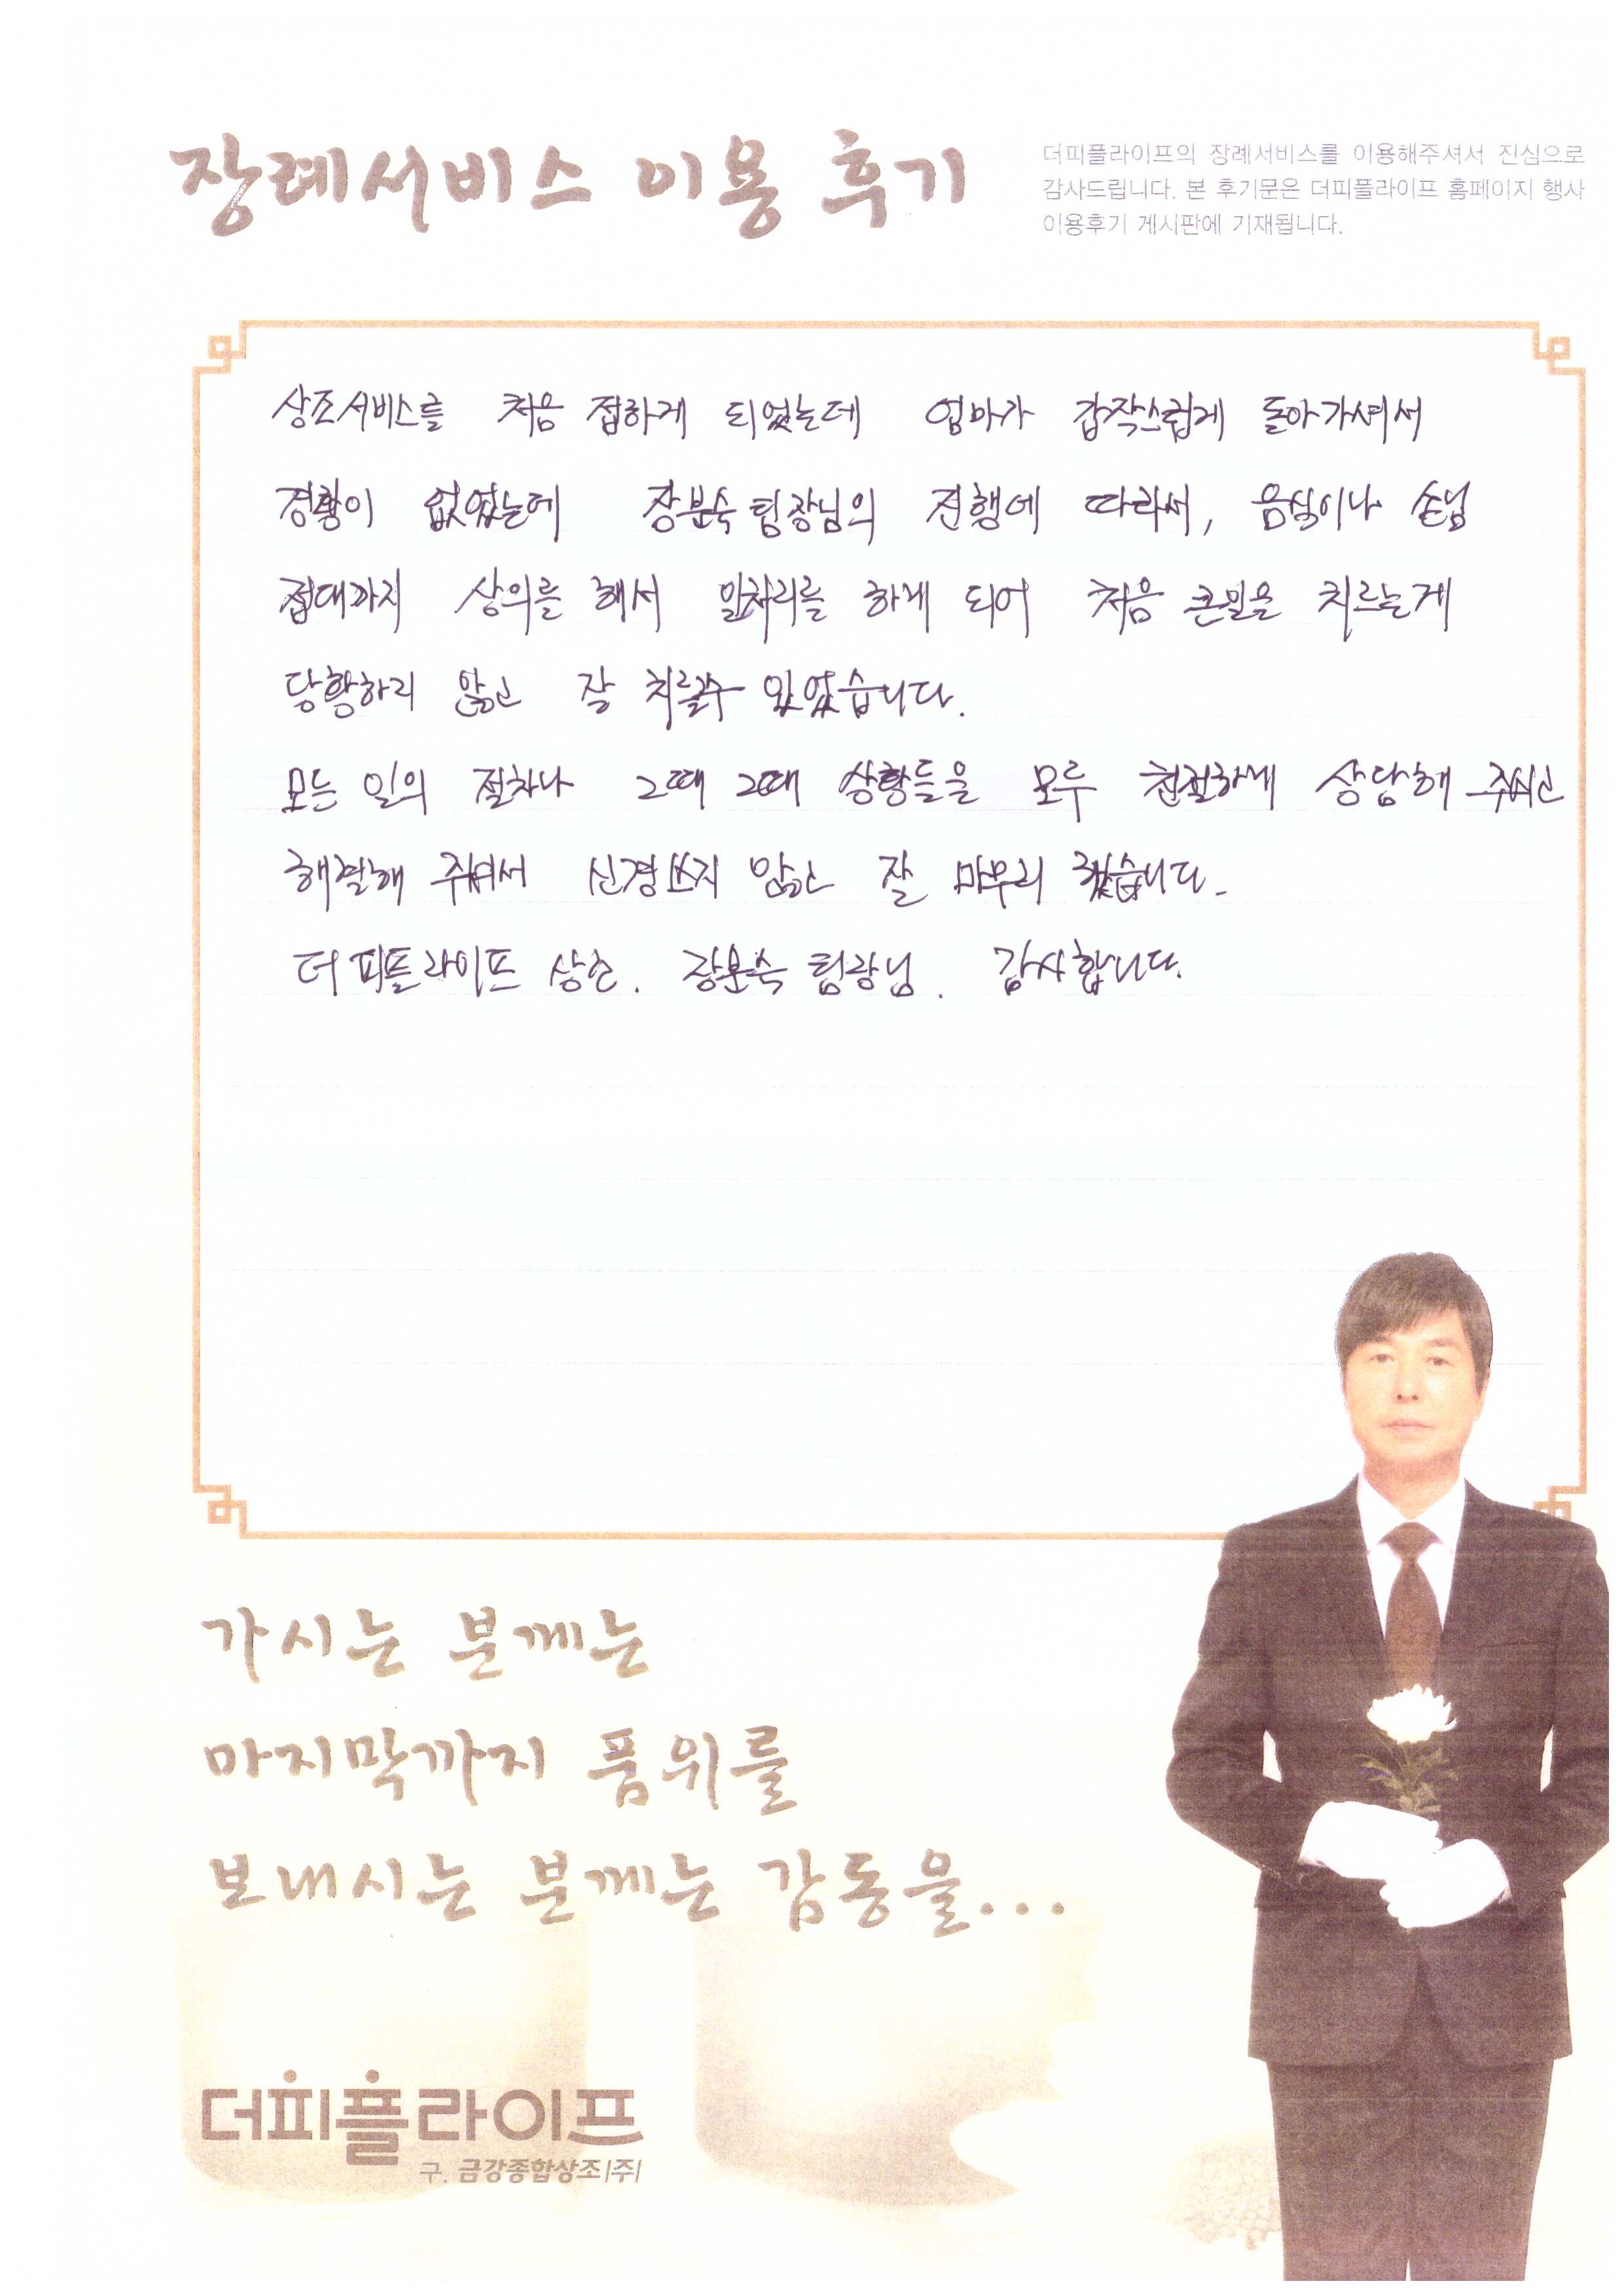 장례서비스 이용 후기
더피플라이프의 장례서비스를 이용해주셔서 진심으로
감사드립니다. 본 후기문은 더피플라이프 홈페이지 행사
이용후기 게시판에 기재됩니다.
상조서비스를 처음 접하게 되었는데 엄마가 갑작스럽게 돌아가셔서
경황이 없었는데 장분숙 팀장님의 진행에 따라서, 음식이나 손님
접대까지 상의를 해서 일처리를 하게 되어 처음 큰일을 치르는게
당황하지 않고 잘 치를수 있었습니다.
모든 일의 절차나 그때 그때 상황들을 모두 친절하게 상담해 주시고
해결해 주셔서 신경쓰지 않고 잘 마무리 했습니다.
더피플라이프 상조. 장분숙 팀장님. 감사합니다.
가시는 분께는
마지막까지 품위를
보내시는 분께는 감동을...
더피플라이프
구. 금강종합상조|주|